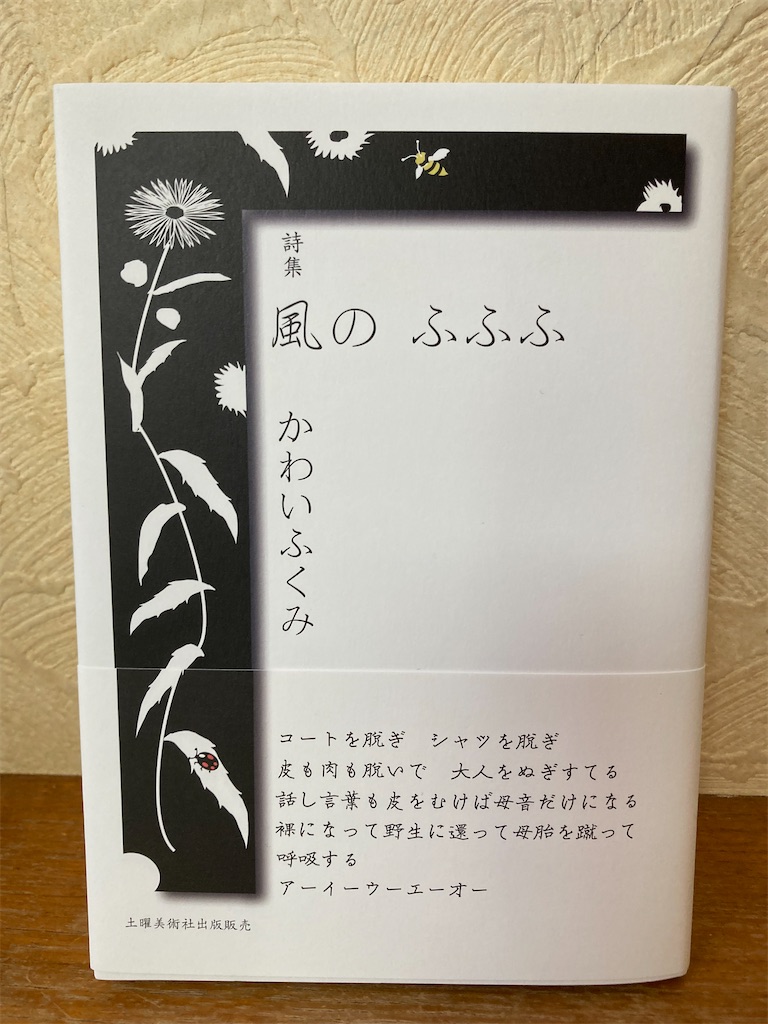 詩集
風の ふふふ
かわいふくみ
コートを脱ぎ　シャツを脱ぎ
皮も肉も脱いで　大人をぬぎすてる
話し言葉も皮をむけば母音だけになる
裸になって野生に還って母胎を蹴って
呼吸する
アーイーウーエーオー
土曜美術社出版販売